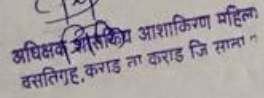 अधिक्षक आशाकिरण महिला
वसतिगृह, कराड ता कराड जि सातारा